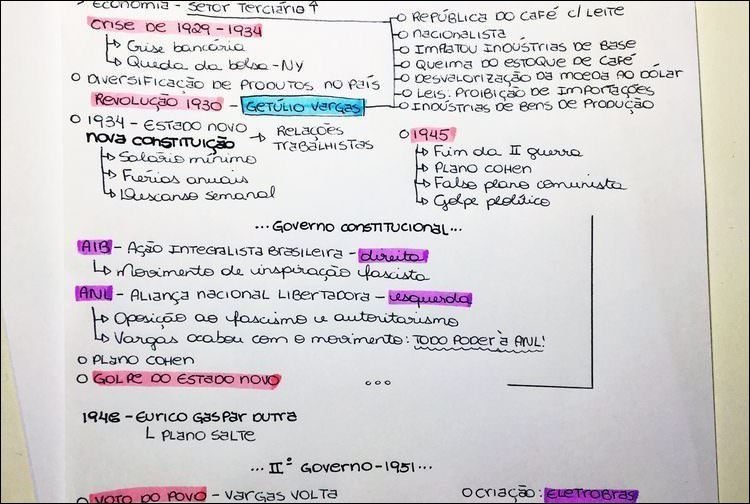 > Economia - Setor Terciário ↑
Crise de 1929-1934
↳ Crise bancária
↳ Queda da bolsa - NY
○ Diversificação de produtos no país
Revolução 1930 - Getúlio Vargas
○ República do café c/ leite
○ Nacionalista
○ Implatou indústrias de base
○ Queima do estoque de café
○ Desvalorização da moeda ao dólar
○ Leis: Proibição de importações
○ Indústrias de bens de produção
○ 1934 - Estado novo
Nova constituição → Relações trabalhistas
↳ Salário mínimo
↳ Férias anuais
↳ Descanso semanal
○ 1945
↳ Fim da II guerra
↳ Plano Cohen
↳ Falso plano comunista
↳ Golpe político
... Governo constitucional...
AIB - Ação Integralista Brasileira - direita
↳ Movimento de inspiração fascista
ANL - Aliança nacional libertadora - esquerda
↳ Oposição ao fascismo e autoritarismo
↳ Vargas acabou com o movimento: Todo poder à ANL!
○ Plano Cohen
○ Golpe do Estado novo
○○○
1948 - Eurico Gaspar Dutra
↳ Plano SALTE
... IIº Governo - 1951 ...
○ Voto do povo - Vargas volta
○ Criação: Eletrobras